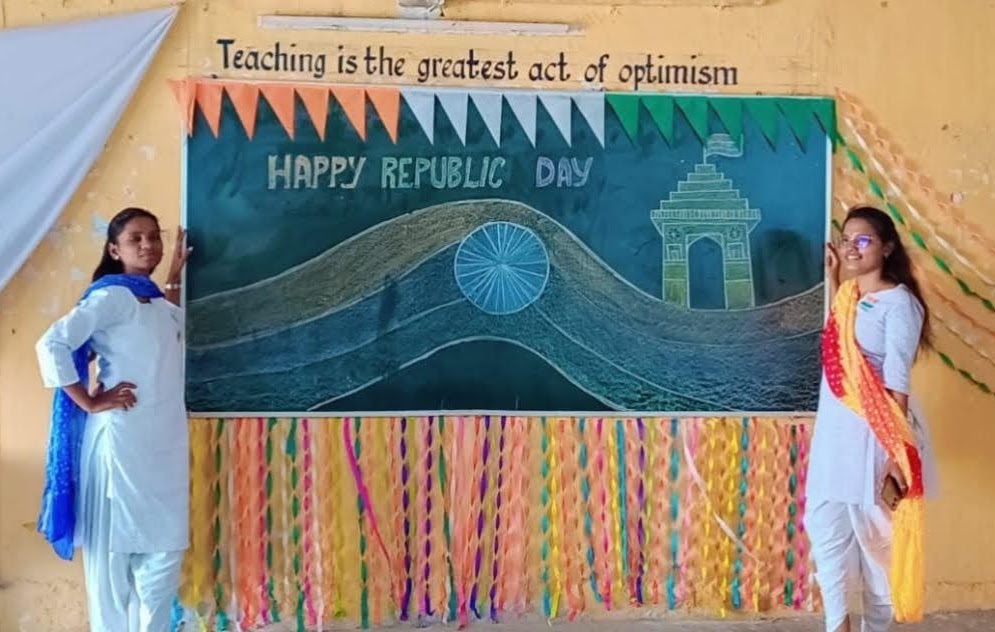 Teaching is the greatest act of optimism
HAPPY REPUBLIC DAY